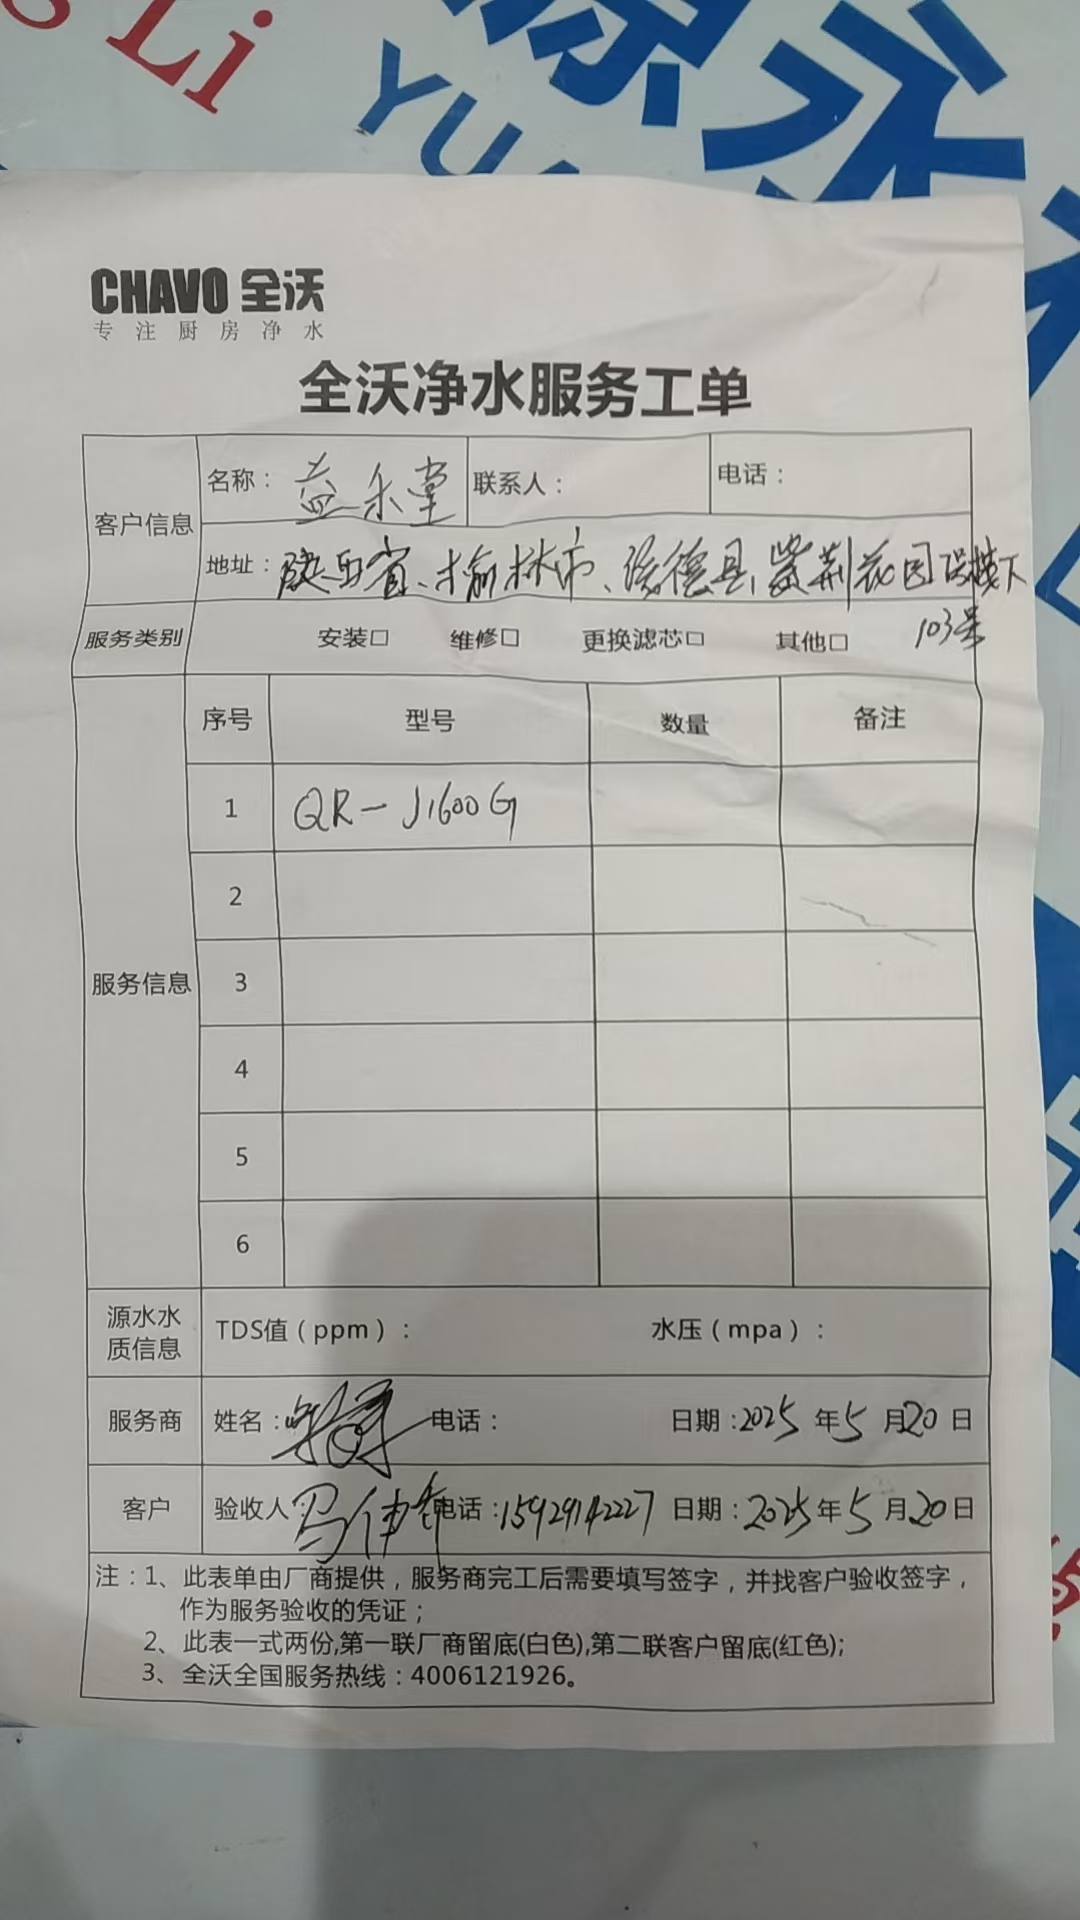 Li
YU
CHAVO 全沃
专注厨房净水
全沃净水服务工单
客户信息 名称：益禾堂 联系人： 电话：
地址：陕西省、榆林市、绥德县、紫荆花园 楼下
103号
服务类别 安装□ 维修□ 更换滤芯□ 其他□
服务信息 序号 型号 数量 备注
1 QR-J1600G
2
3
4
5
6
源水水质信息 TDS值（ppm）： 水压（mpa）：
服务商 姓名： 电话： 日期：2025年5月20日
客户 验收人：马 电话：15929142227 日期：2025年5月20日
注：1、此表单由厂商提供，服务商完工后需要填写签字，并找客户验收签字，
作为服务验收的凭证；
2、此表一式两份,第一联厂商留底(白色),第二联客户留底(红色);
3、全沃全国服务热线：4006121926。